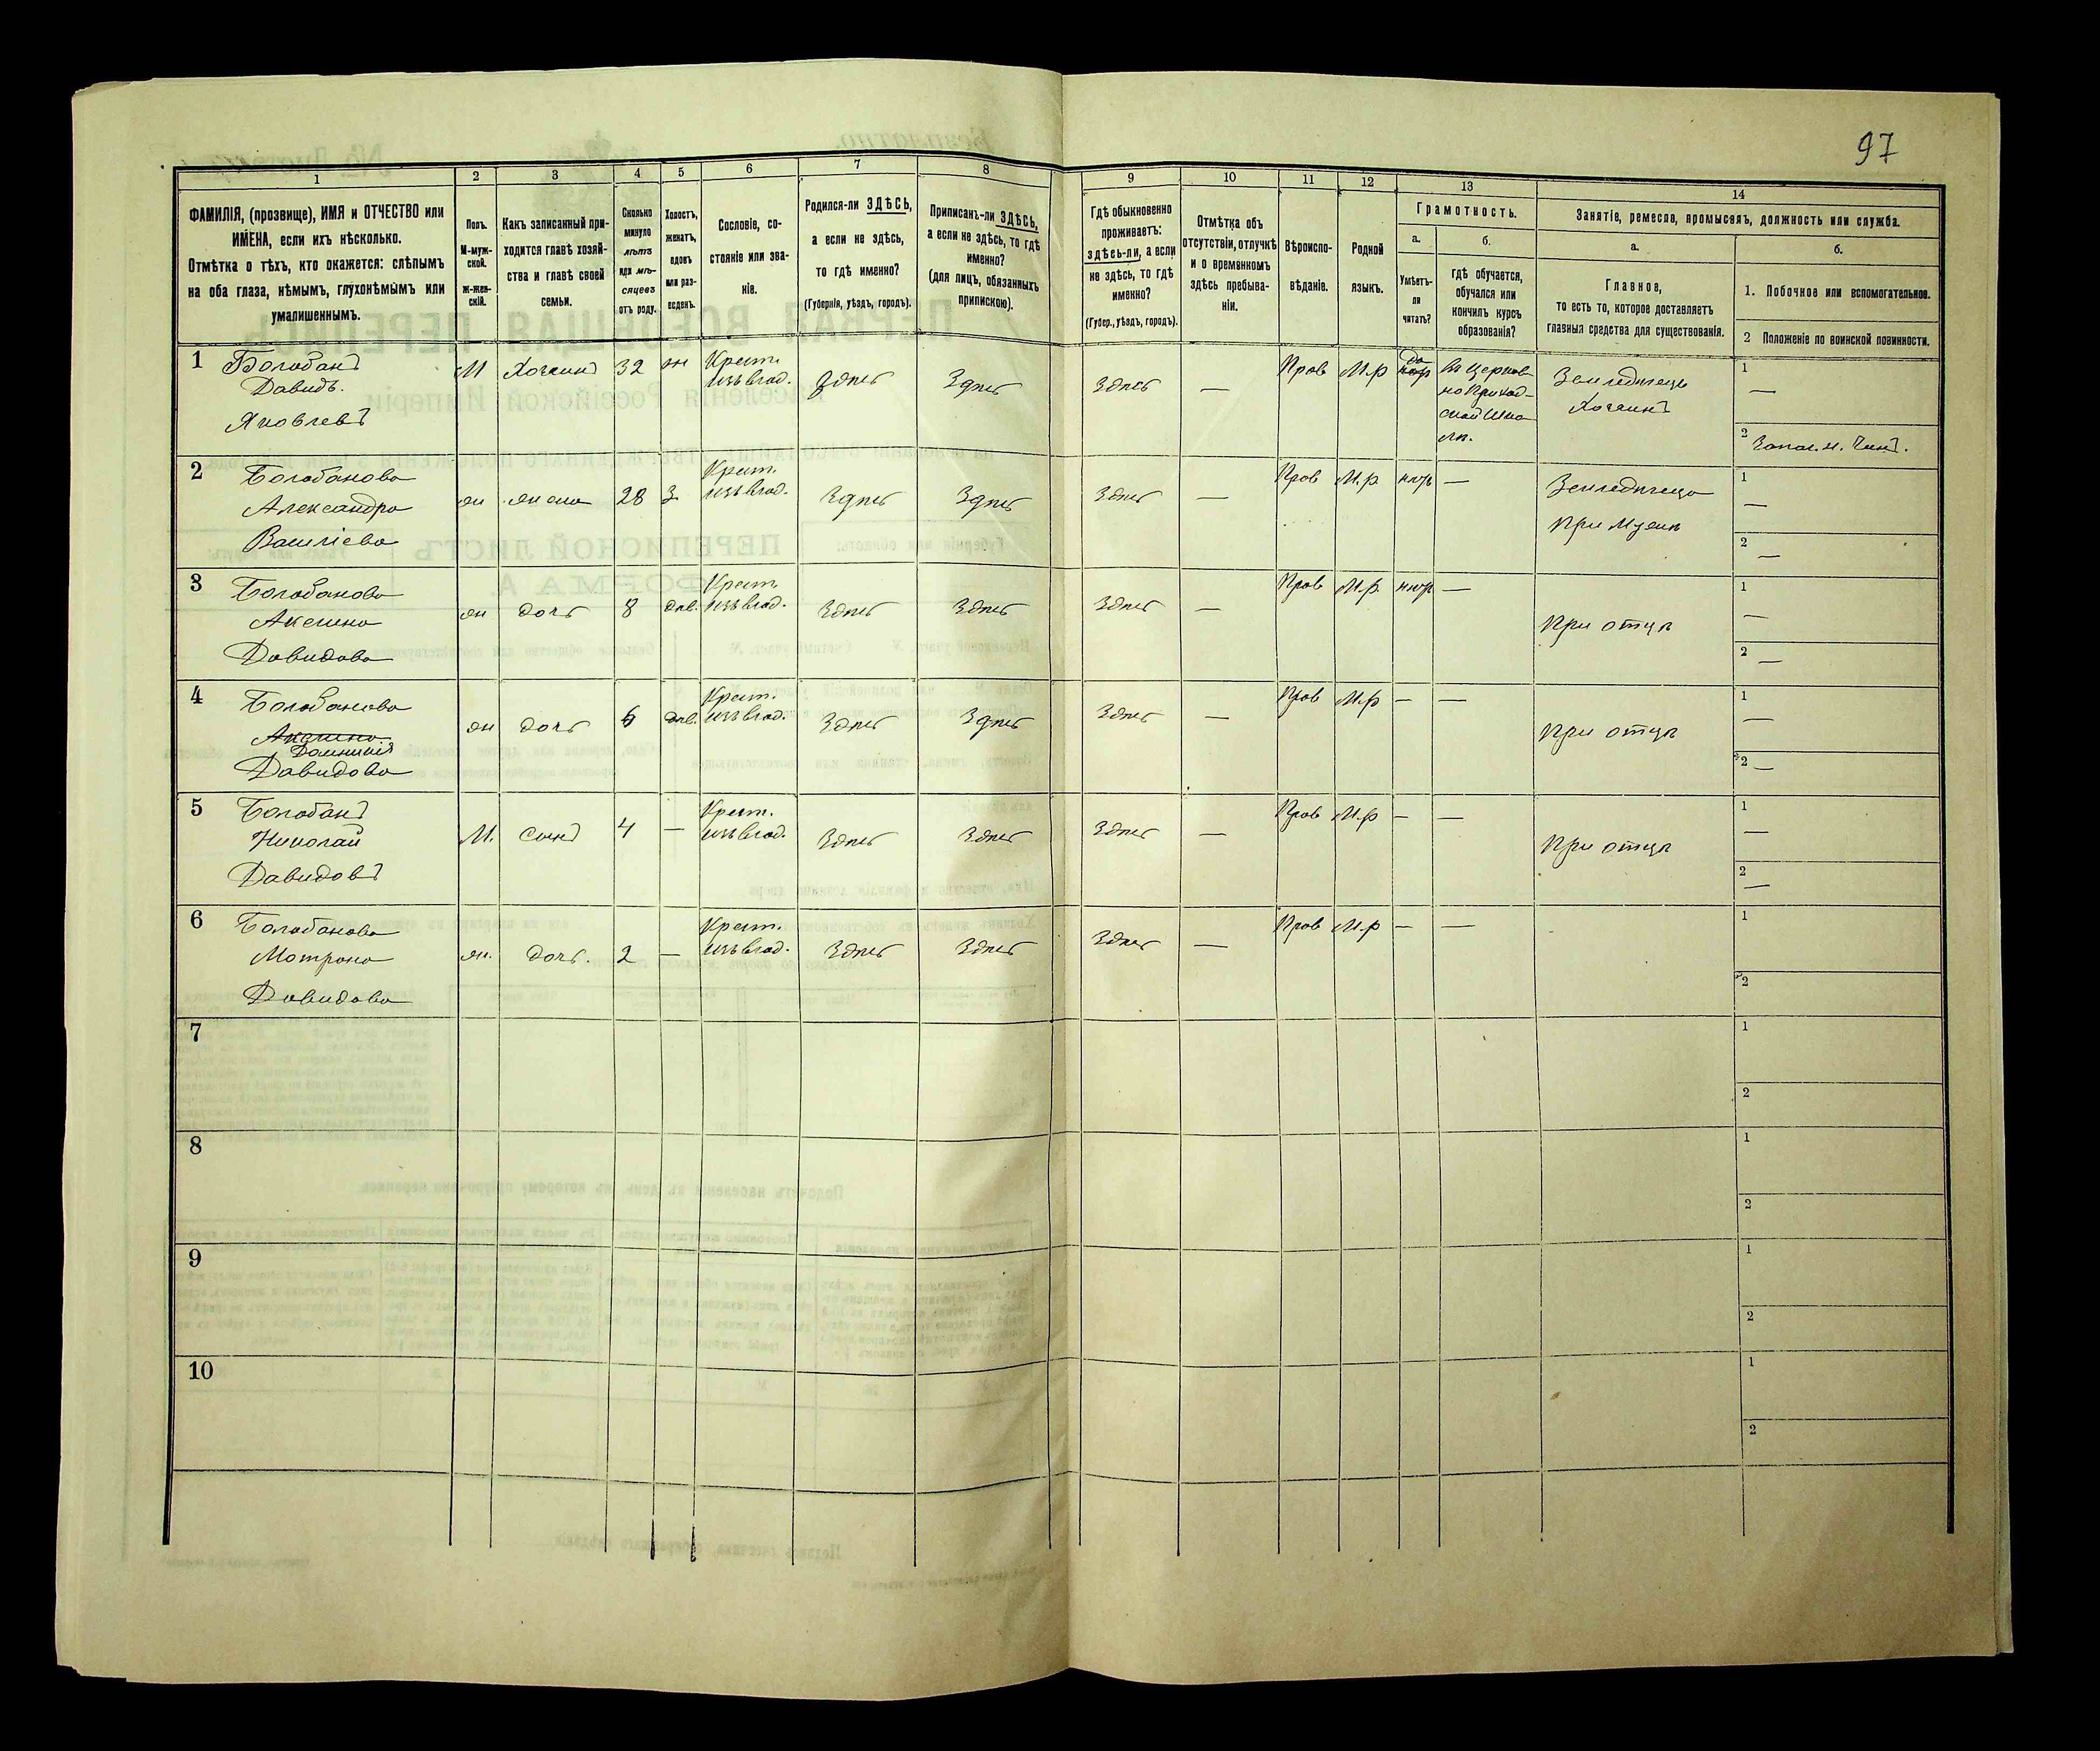 97
1 2 3 4 5 6 7 8 9 10 11 12 13 14
ФАМИЛІЯ, (прозвище), ИМЯ и ОТЧЕСТВО или
ИМЕНА, если ихъ нѣсколько.
Отмѣтка о тѣхъ, кто окажется: слѣпымъ
на оба глаза, нѣмымъ, глухонѣмымъ или
умалишеннымъ.
Полъ.
М-муж-
ской.
ж-жен-
скій.
Какъ записанный при-
ходится главѣ хозяй-
ства и главѣ своей
семьи.
Сколько
минуло
лѣтъ
или мѣ-
сяцевъ
отъ роду.
Холостъ,
женатъ,
вдовъ
или раз-
веденъ.
Сословіе, со-
стояніе или зва-
ніе.
Родился-ли ЗДѢСЬ,
а если не здѣсь,
то гдѣ именно?
(Губернія, уѣздъ, городъ).
Приписанъ-ли ЗДѢСЬ,
а если не здѣсь, то гдѣ
именно?
(для лицъ, обязанныхъ
припискою).
Гдѣ обыкновенно
проживаетъ:
здѣсь-ли, а если
не здѣсь, то гдѣ
именно?
(Губер., уѣздъ, городъ).
Отмѣтка объ
отсутствіи, отлучкѣ
и о временномъ
здѣсь пребыва-
ніи.
Вѣроиспо-
вѣданіе.
Родной
языкъ.
Грамотность.
а.
Умѣетъ-
ли
читать?
б.
гдѣ обучается,
обучался или
кончилъ курсъ
образованія?
Занятіе, ремесло, промыселъ, должность или служба.
а.
Главное,
то есть то, которое доставляетъ
главныя средства для существованія.
б.
1. Побочное или вспомогательное.
2 Положеніе по воинской повинности.
1 Болобанъ
Давидъ.
Яковлевъ
М Хозяинъ 32 ж Крест.
изъ влад.
Здѣсь Здѣсь Здѣсь — Пров М.р да
Въ Церков-
но Приход-
ской Шко
лѣ.
Земледѣлецъ
Хозяинъ
1 —
2 Запас. н. Чинъ.
2 Болобанова
Александра
Василіева
ж жена 28 з. Крест.
изъ влад.
Здѣсь Здѣсь Здѣсь — Пров М.р нѣтъ —
Земледѣлецъ
При Мужѣ
1 —
2 —
3 Болобанова
Акелина
Давидова
ж дочь 8 дѣв. Крест
изъ влад.
Здѣсь Здѣсь Здѣсь — Пров М.р. нѣтъ —
При отцѣ
1 —
2 —
4 Болобанова
Домникія
Давидова
ж дочь 6 дѣв. Крест.
изъ влад.
Здѣсь Здѣсь Здѣсь — Пров М.р — —
При отцѣ
1 —
2 —
5 Болобанъ
Николай
Давидовъ
М. сынъ 4 — Крест.
изъ влад.
Здѣсь Здѣсь Здѣсь — Пров М.р — —
При отцѣ
1 —
2 —
6 Болобанова
Мотрона
Давидова
ж. дочь. 2 — Крест.
изъ влад.
Здѣсь Здѣсь Здѣсь — Пров М.р — —
1
2
7
1
2
8
1
2
9
1
2
10
1
2